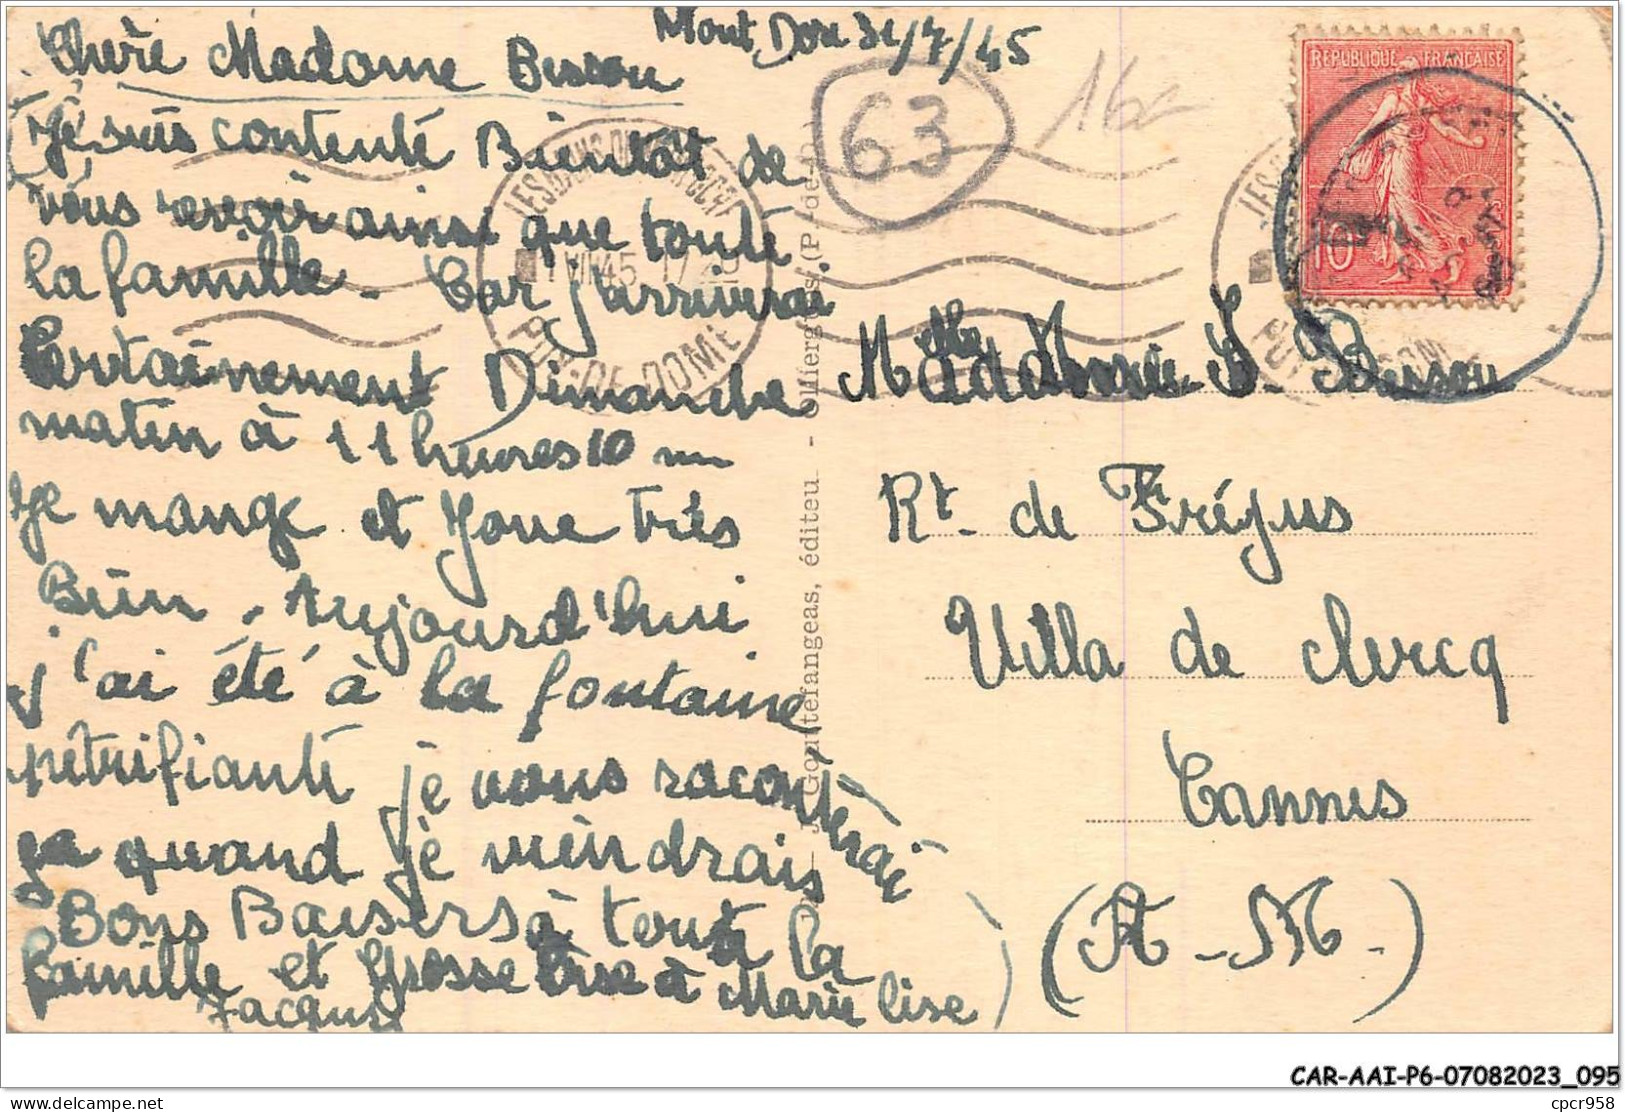 Mont Dore 31/7/45
Chère Madame Bessou
63
162
REPUBLIQUE FRANÇAISE
10
Je suis contente Bientot de
vous revoir ainsi que toute
la famille. Car j'arriverai
Certainement Dimanche
matin à 11 heures 10 m
Je mange et Joue très
Bien. Aujourd'hui
j'ai été à la fontaine
pétrifiante je vous raconterai
ça quand je viendrais
Bons Baisers à toute la
famille et Grosse Bise à Marie lise
Jacques
1 VIII 45
PUY-DE-DOME
J. Gouttefangeas, éditeu. - Olliergues (P.-de-D.)
Madame S. Bessou
Rt. de Fréjus
Villa de clercq
Cannes
(A-M.)
CAR-AAI-P6-07082023_095
delcampe.net
cpcr958